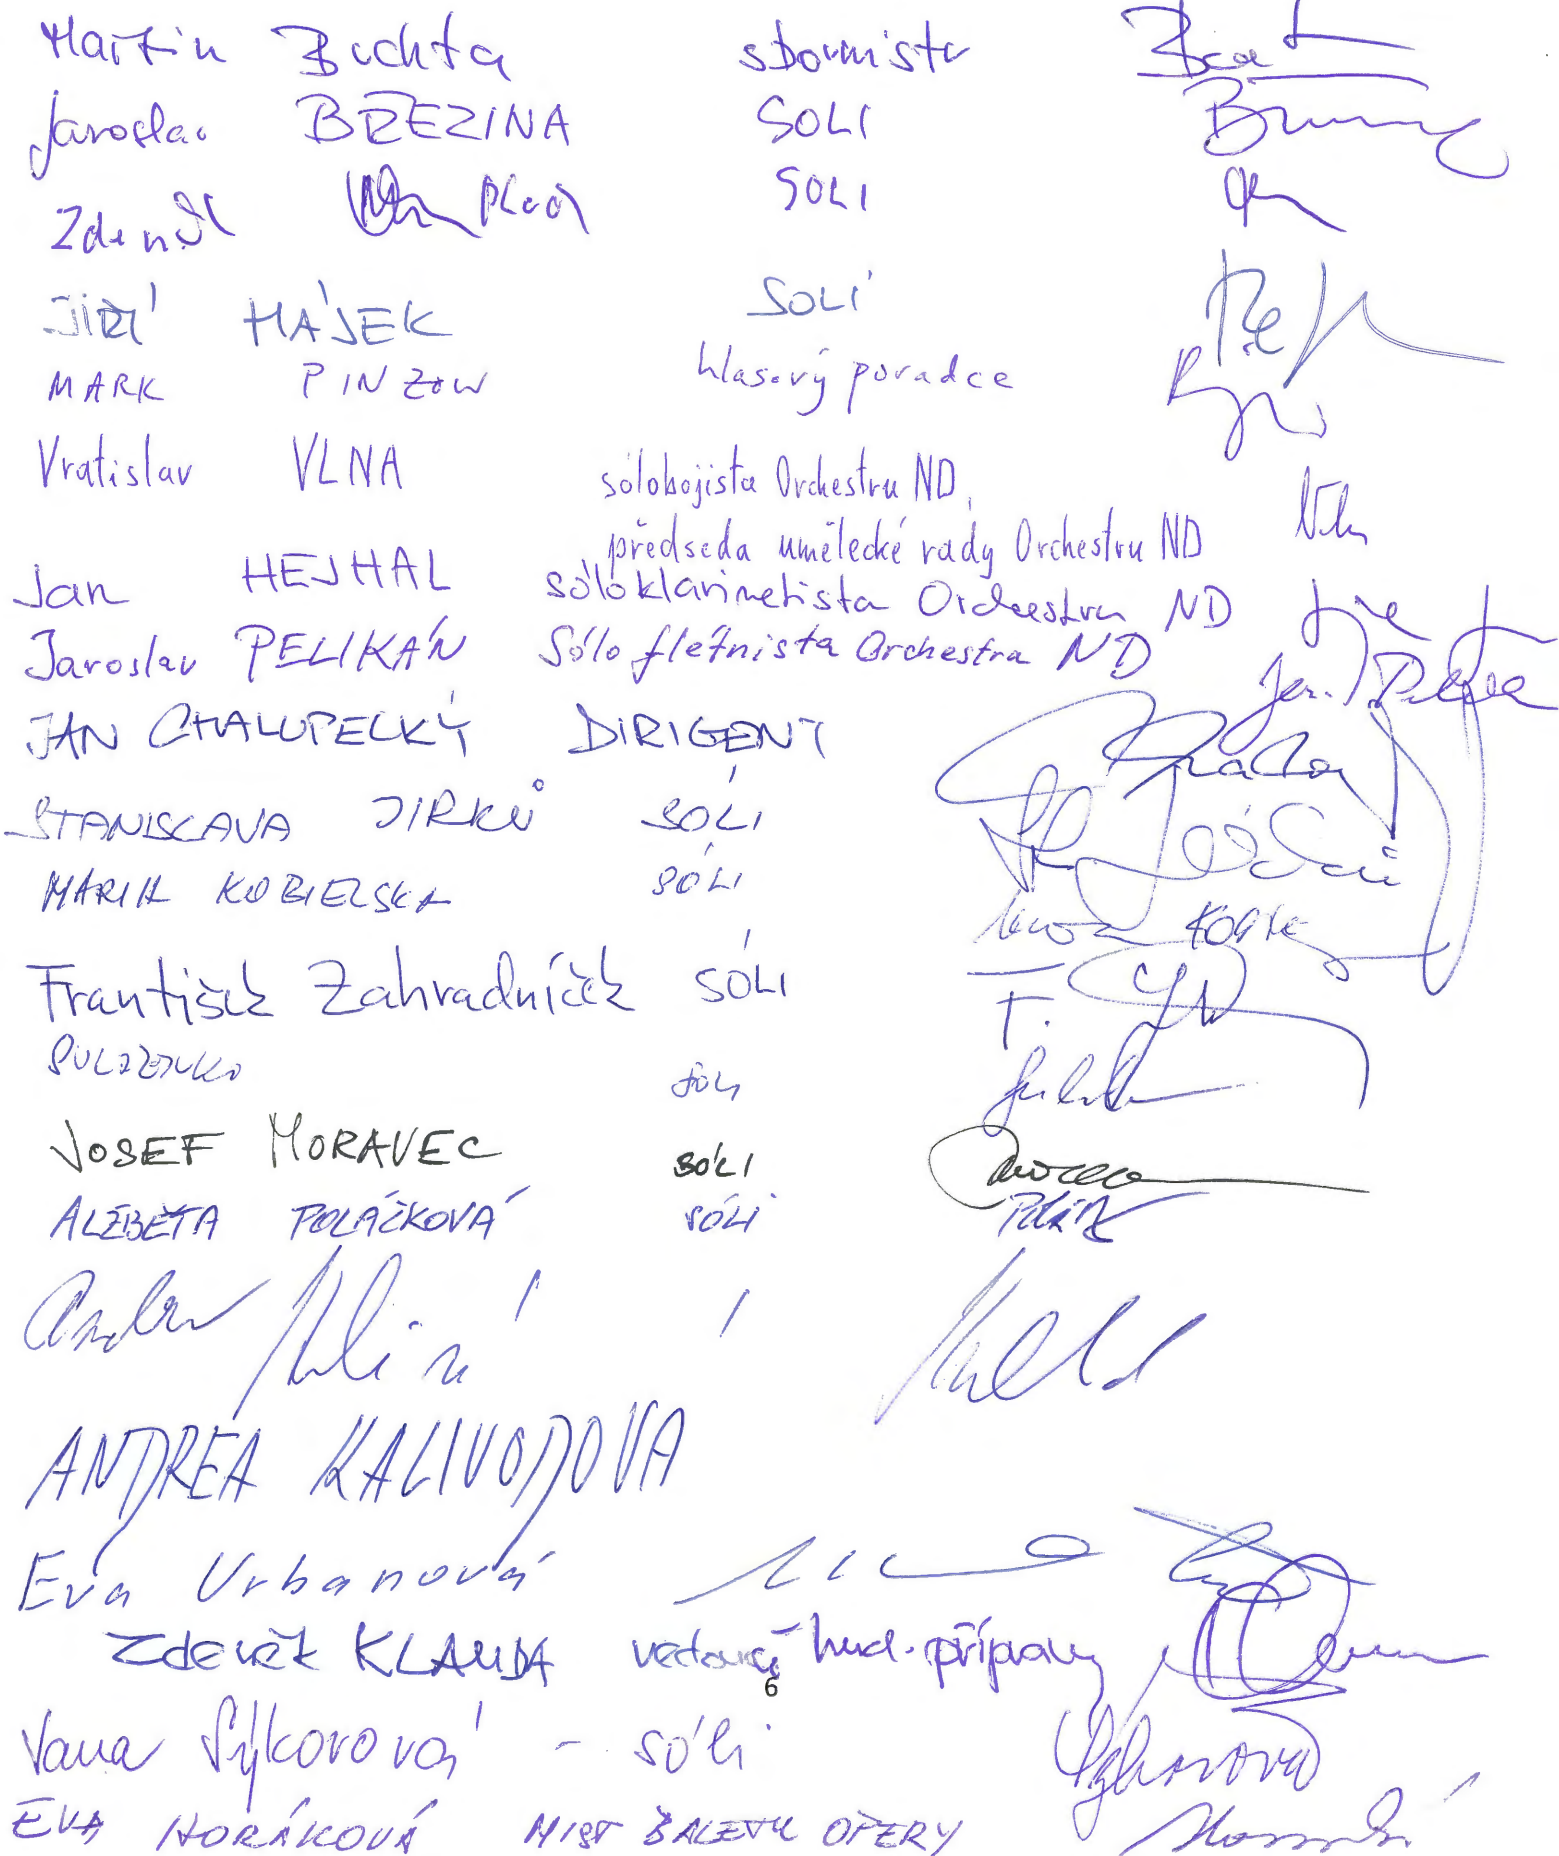 Martin Buchta sbormistr
Jaroslav BŘEZINA SOLI
Zdeněk Plech SOLI
JIŘÍ HÁJEK SOLI
MARK PINZOW hlasový poradce
Vratislav VLNA sólohojista Orchestru ND,
předseda umělecké rady Orchestru ND
Jan HEJHAL sóloklarinetista Orchestru ND
Jaroslav PELIKÁN Sólo flétnista Orchestra ND
JAN CHALUPECKÝ DIRIGENT
STANISLAVA JIRKŮ SÓLI
MARIA KOBIELSKA SÓLI
František Zahradníček SÓLI
SULŽENKO sóli
JOSEF MORAVEC SÓLI
ALŽBĚTA POLÁČKOVÁ SÓLI
ANDREA KALIVODOVA
Eva Urbanová
Zdeněk KLAUDA vedoucí hud. přípravy
6
Jana Sýkorová - sóli
EVA HORÁKOVÁ MIST BALETU OPERY